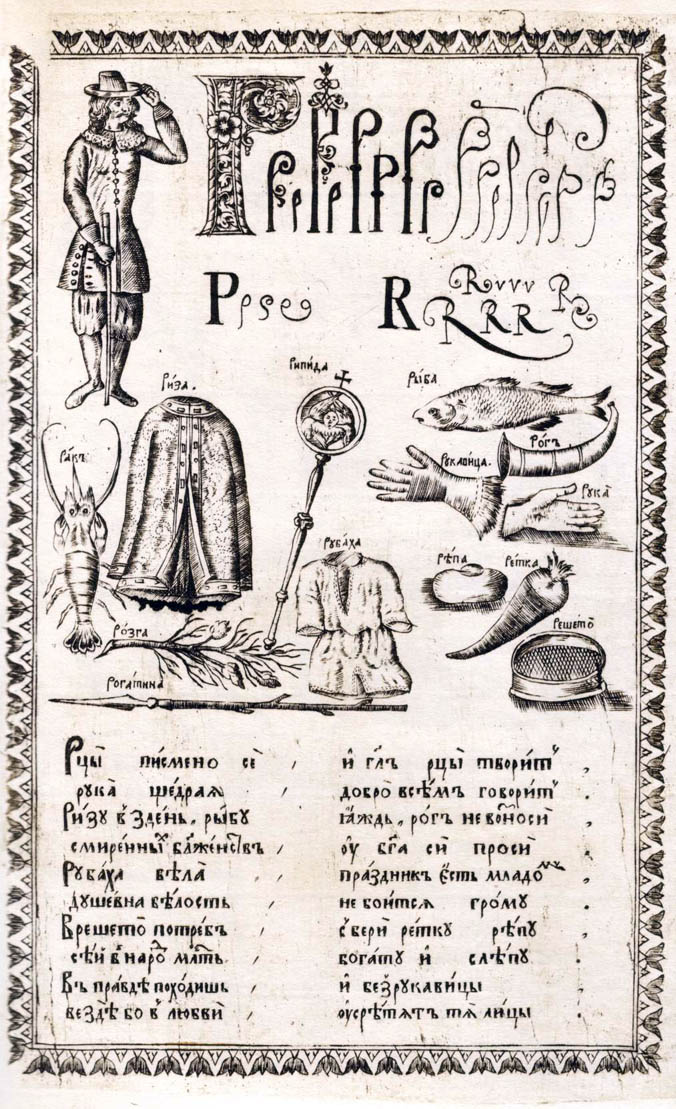 Р р s e
R R R R R v v v R
Риза.
Рипида
Рыба
Ракъ
Рукавица.
Рогъ
Рука
Рубаха
Рѣпа
Ретка
Розга
Решето
Рогатина
Рцы писмено сѐ , и гл҃ъ рцы творитъ ,
рука щедрая добро всѣмъ говоритъ .
Ризу в̾здень, рыбу ꙗждь, рогъ не возноси
смиренных бл҃женствъ , оу бг҃а си проси
Рубаха бѣла праздникъ есть младо
душевна бѣлость , не боится грому .
В решето потребъ , с̾бери ретку рѣпу
сѣй в̾ наро мать . богату и слѣпу .
Въ правдѣ походишь , и без̾рукавицы
вездѣ бо в̾ любви , оусрѣтятъ тя лицы .